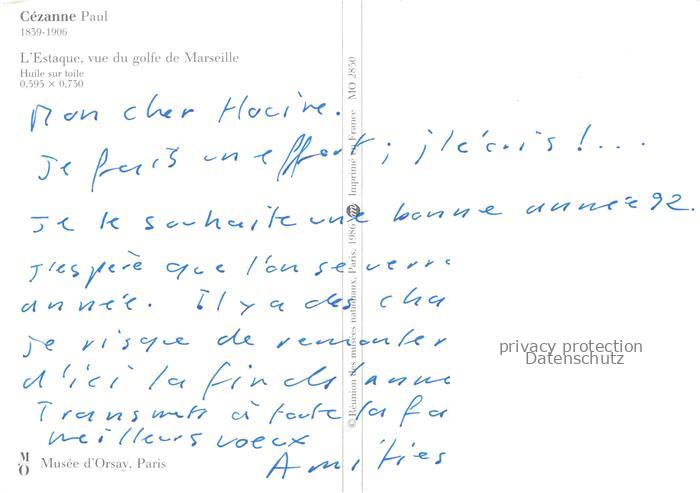 Cézanne Paul
1839-1906
L'Estaque, vue du golfe de Marseille
Huile sur toile
0,595 × 0,730
Mon cher Hocine.
Je fais un effort ; j'écris !...
Je te souhaite une bonne année 92.
J'espère que l'on se verra
année. Il y a des cha
je risque de remonter
d'ici la fin de l'anné
Transmets à toute la fa
meilleurs voeux
Amitiés
MO Musée d'Orsay, Paris
© Réunion des musées nationaux, Paris, 1986 Imprimé en France MO 2850
privacy protection
Datenschutz